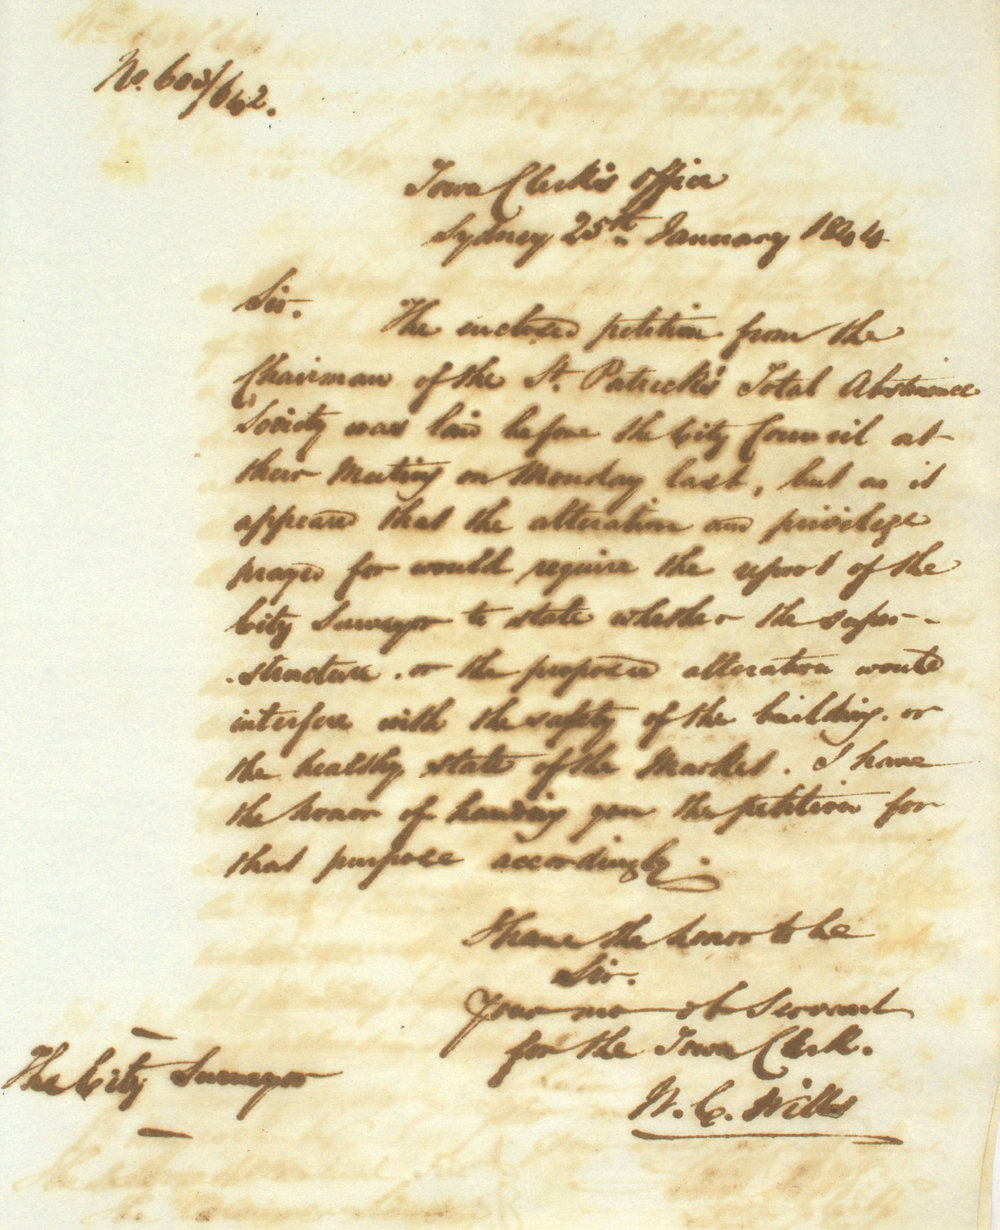 No. 603/642.
Town Clerk's Office
Sydney 25th. January 1844
Sir.
The enclosed petition from the
Chairman of the St. Patrick's Total Abstinence
Society was laid before the City Council at
their Meeting on Monday last, but as it
appeared that the alteration and privilege
prayed for would require the report of the
City Surveyor to state whether the super-
structure. or the proposed alteration would
interfere with the safety of the building. or
the healthy state of the Market. I have
the honor of handing you the petition for
that purpose accordingly.
I have the honor to be
Sir.
Your mo ob Servant
for the Town Clerk.
W. C. Wills
The City Surveyor